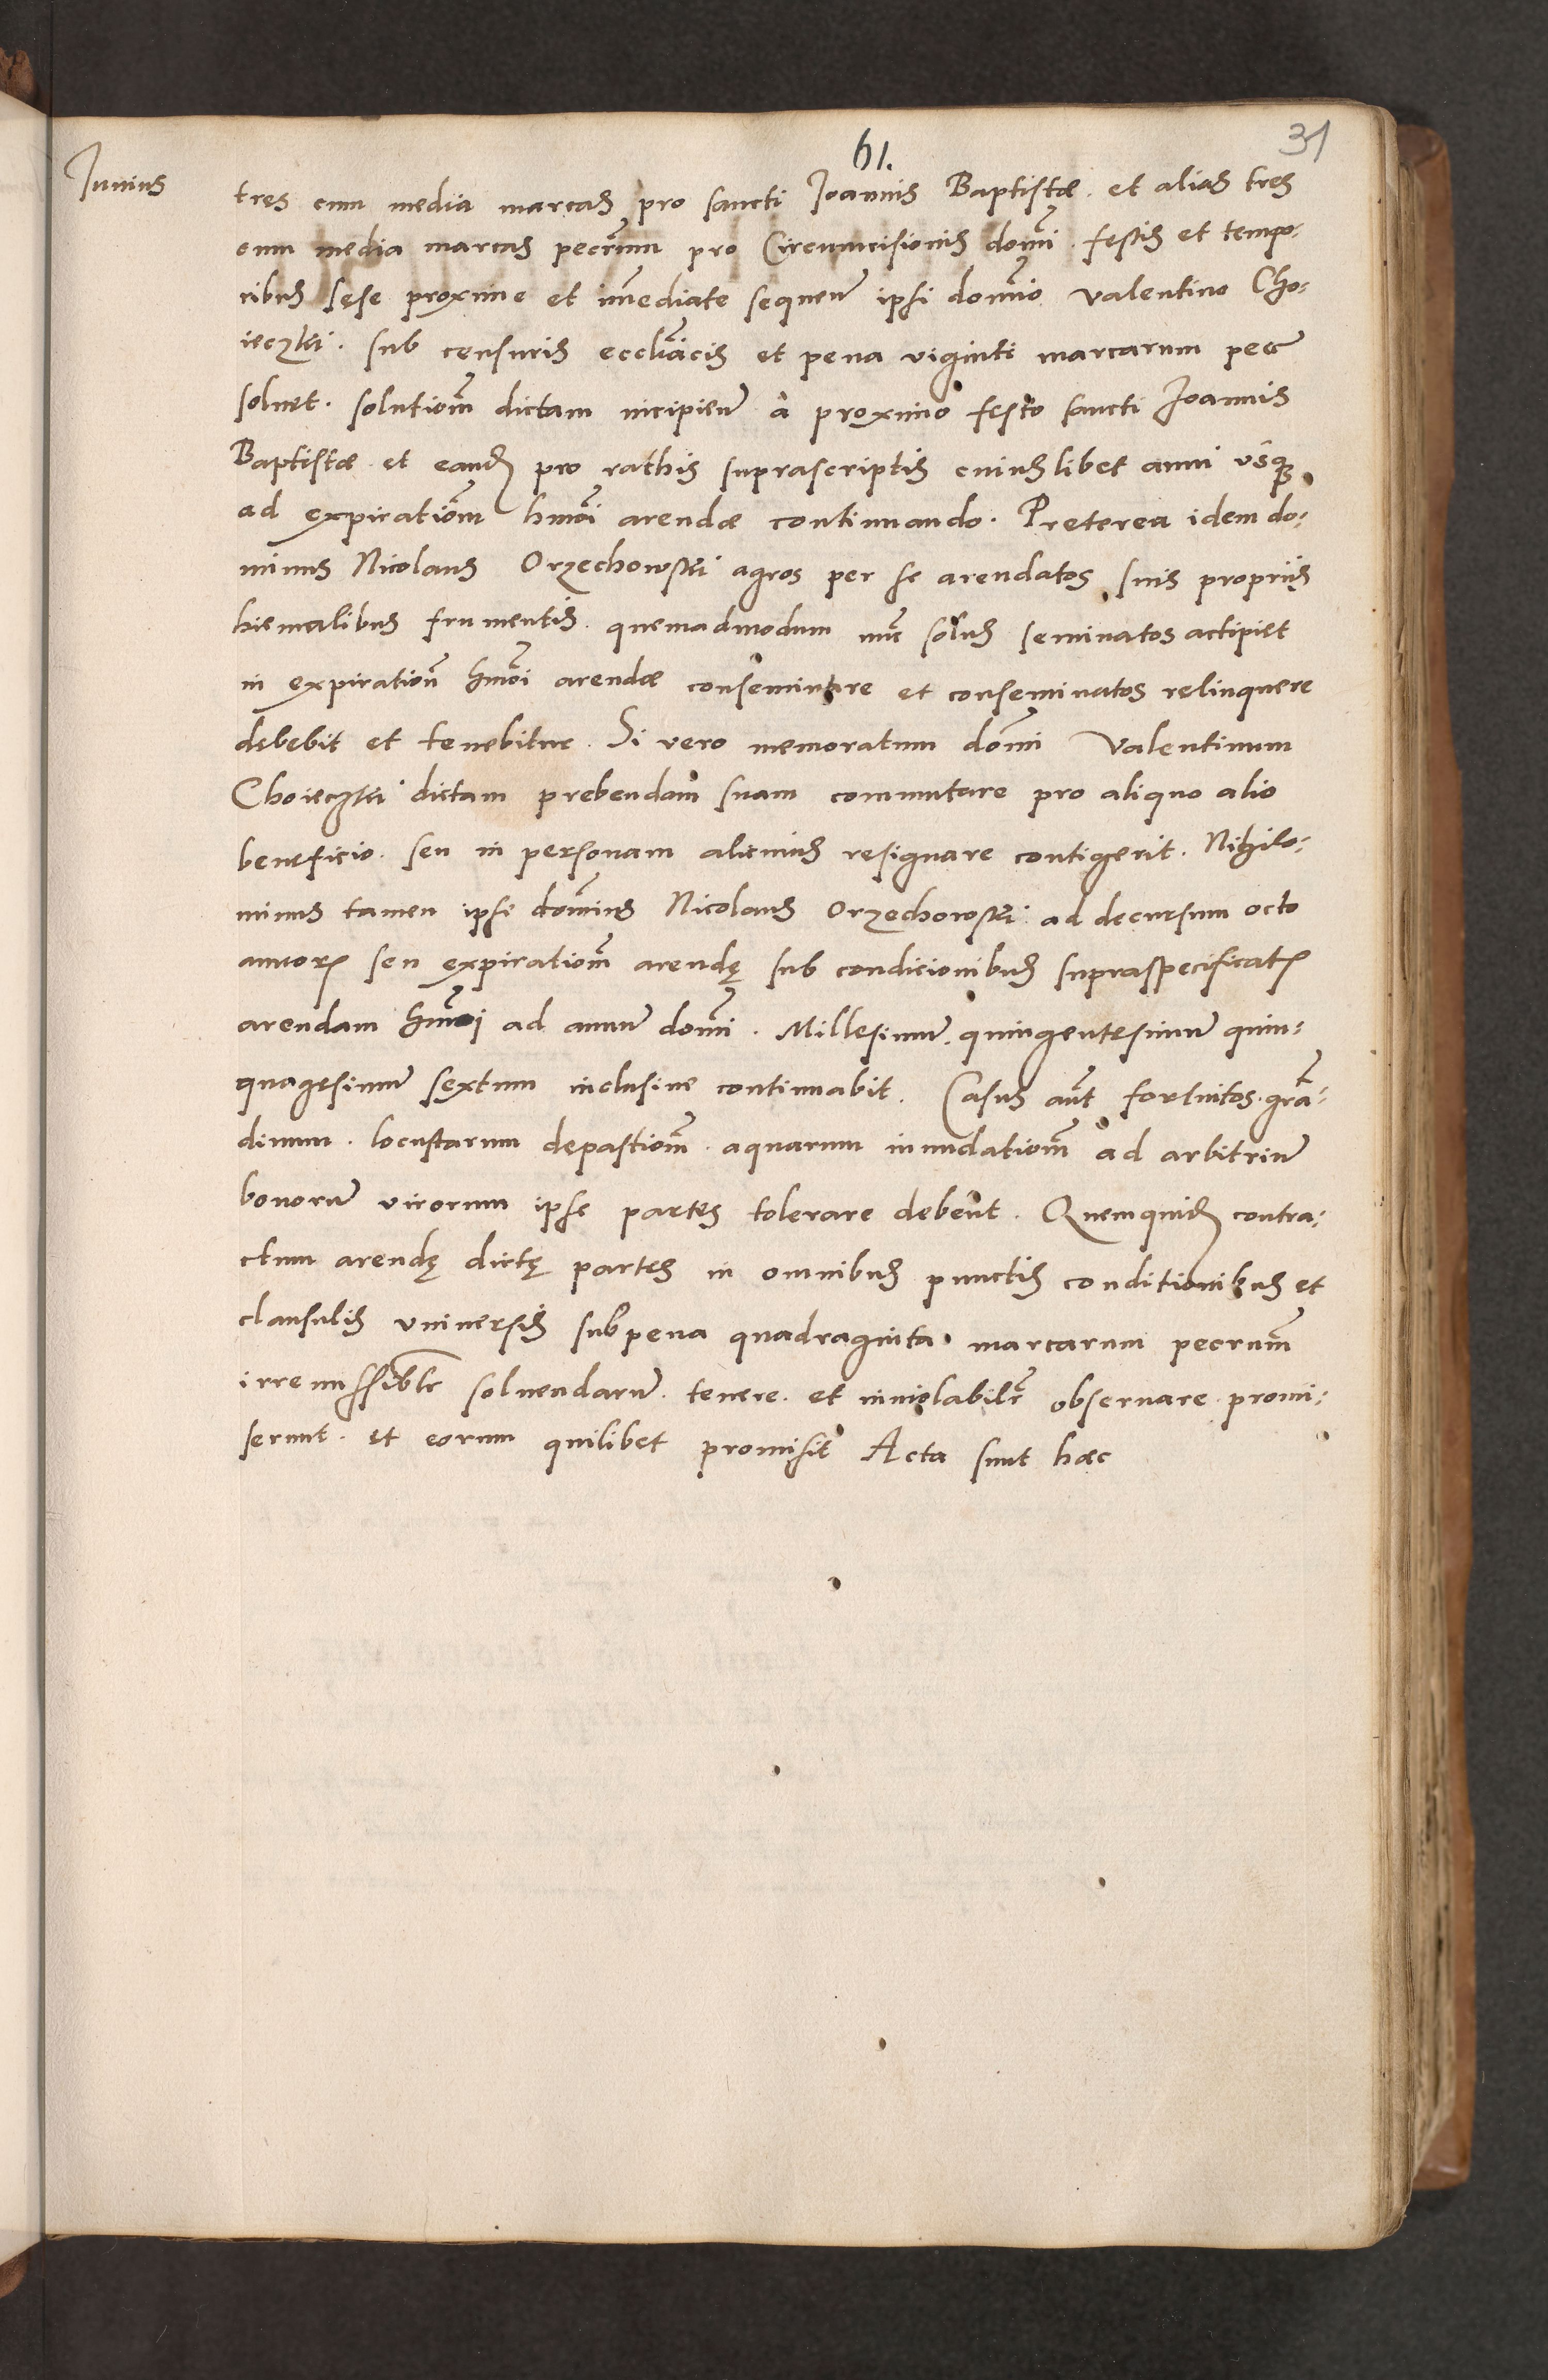 61.
31
Junius
tres cum media marcas pro sancti Joannis Baptistæ. et alias tres
cum media marcas pecr̃um pro Circumcisionis domĩ. festis et tempo-
ribus sese proxime et im̃ediate sequeñ ipsi domĩo Valentino Cho-
ieczki. sub censuris eccłiãcis et pena viginti marcarum pecc̃
soluet. solutioñm dictam incipień a proximo festo sancti Joannis
Baptistæ et eandẽ pro rathis suprascriptis cuiuslibet anni vsq̃
ad expiratioñm hmõi arendæ continuando. Preterea idem do-
minus Nicolaus Orzechowski agros per se arendatos suis proprijs
hiemalibus frumentis. quemadmodum nũc solus seminatos accipiet
in expiratioñ hmõi arendæ conseminare et conseminatos relinquere
debebit et tenebitur. Si vero memoratum domĩ Valentinum
Choieczki dictam prebendam suam commutare pro aliquo alio
beneficio. seu in personam alicuius resignare contigerit. Nihilo-
minus tamen ipse domĩus Nicolaus Orzechowski ad decursum octo
annorꝝ seu expiratioñm arendę sub condicionibus supraspecificatꝭ
arendam hmõi ad annũ domĩ. Millesimũ. quingentesimũ quin-
quagesimũ sextum inclusiue continuabit. Casus aũt fortuitos. grã-
dinum. locustarum depastioñm. aquarum inundatioñm ad arbitriũ
bonorũ virorum ipse partes tolerare debeñt. Quemquidẽ contra-
ctum arendę dictę partes in omnibus punctis conditionibus et
clausulis vniuersis sub pena quadraginta marcarum pecrum̃
irremissiblr̃ soluendarũ. tenere. et inuiolabilr̃ obseruare promi-
serunt. et eorum quilibet promisit Acta sunt hæc